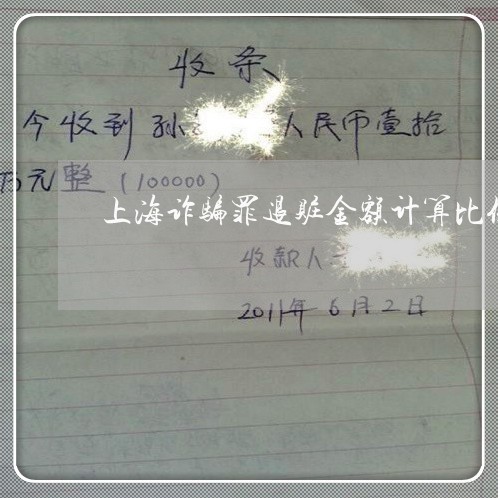 收条
今收到孙 人民币壹拾
万元整(100000)
上海诈骗罪退赃金额计算比
收款人
2011年6月2日